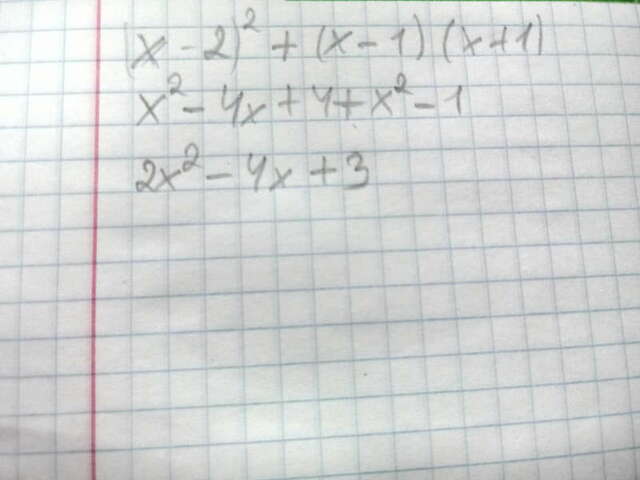 (x - 2)² + (x - 1) (x + 1)
x² - 4x + 4 + x² - 1
2x² - 4x + 3